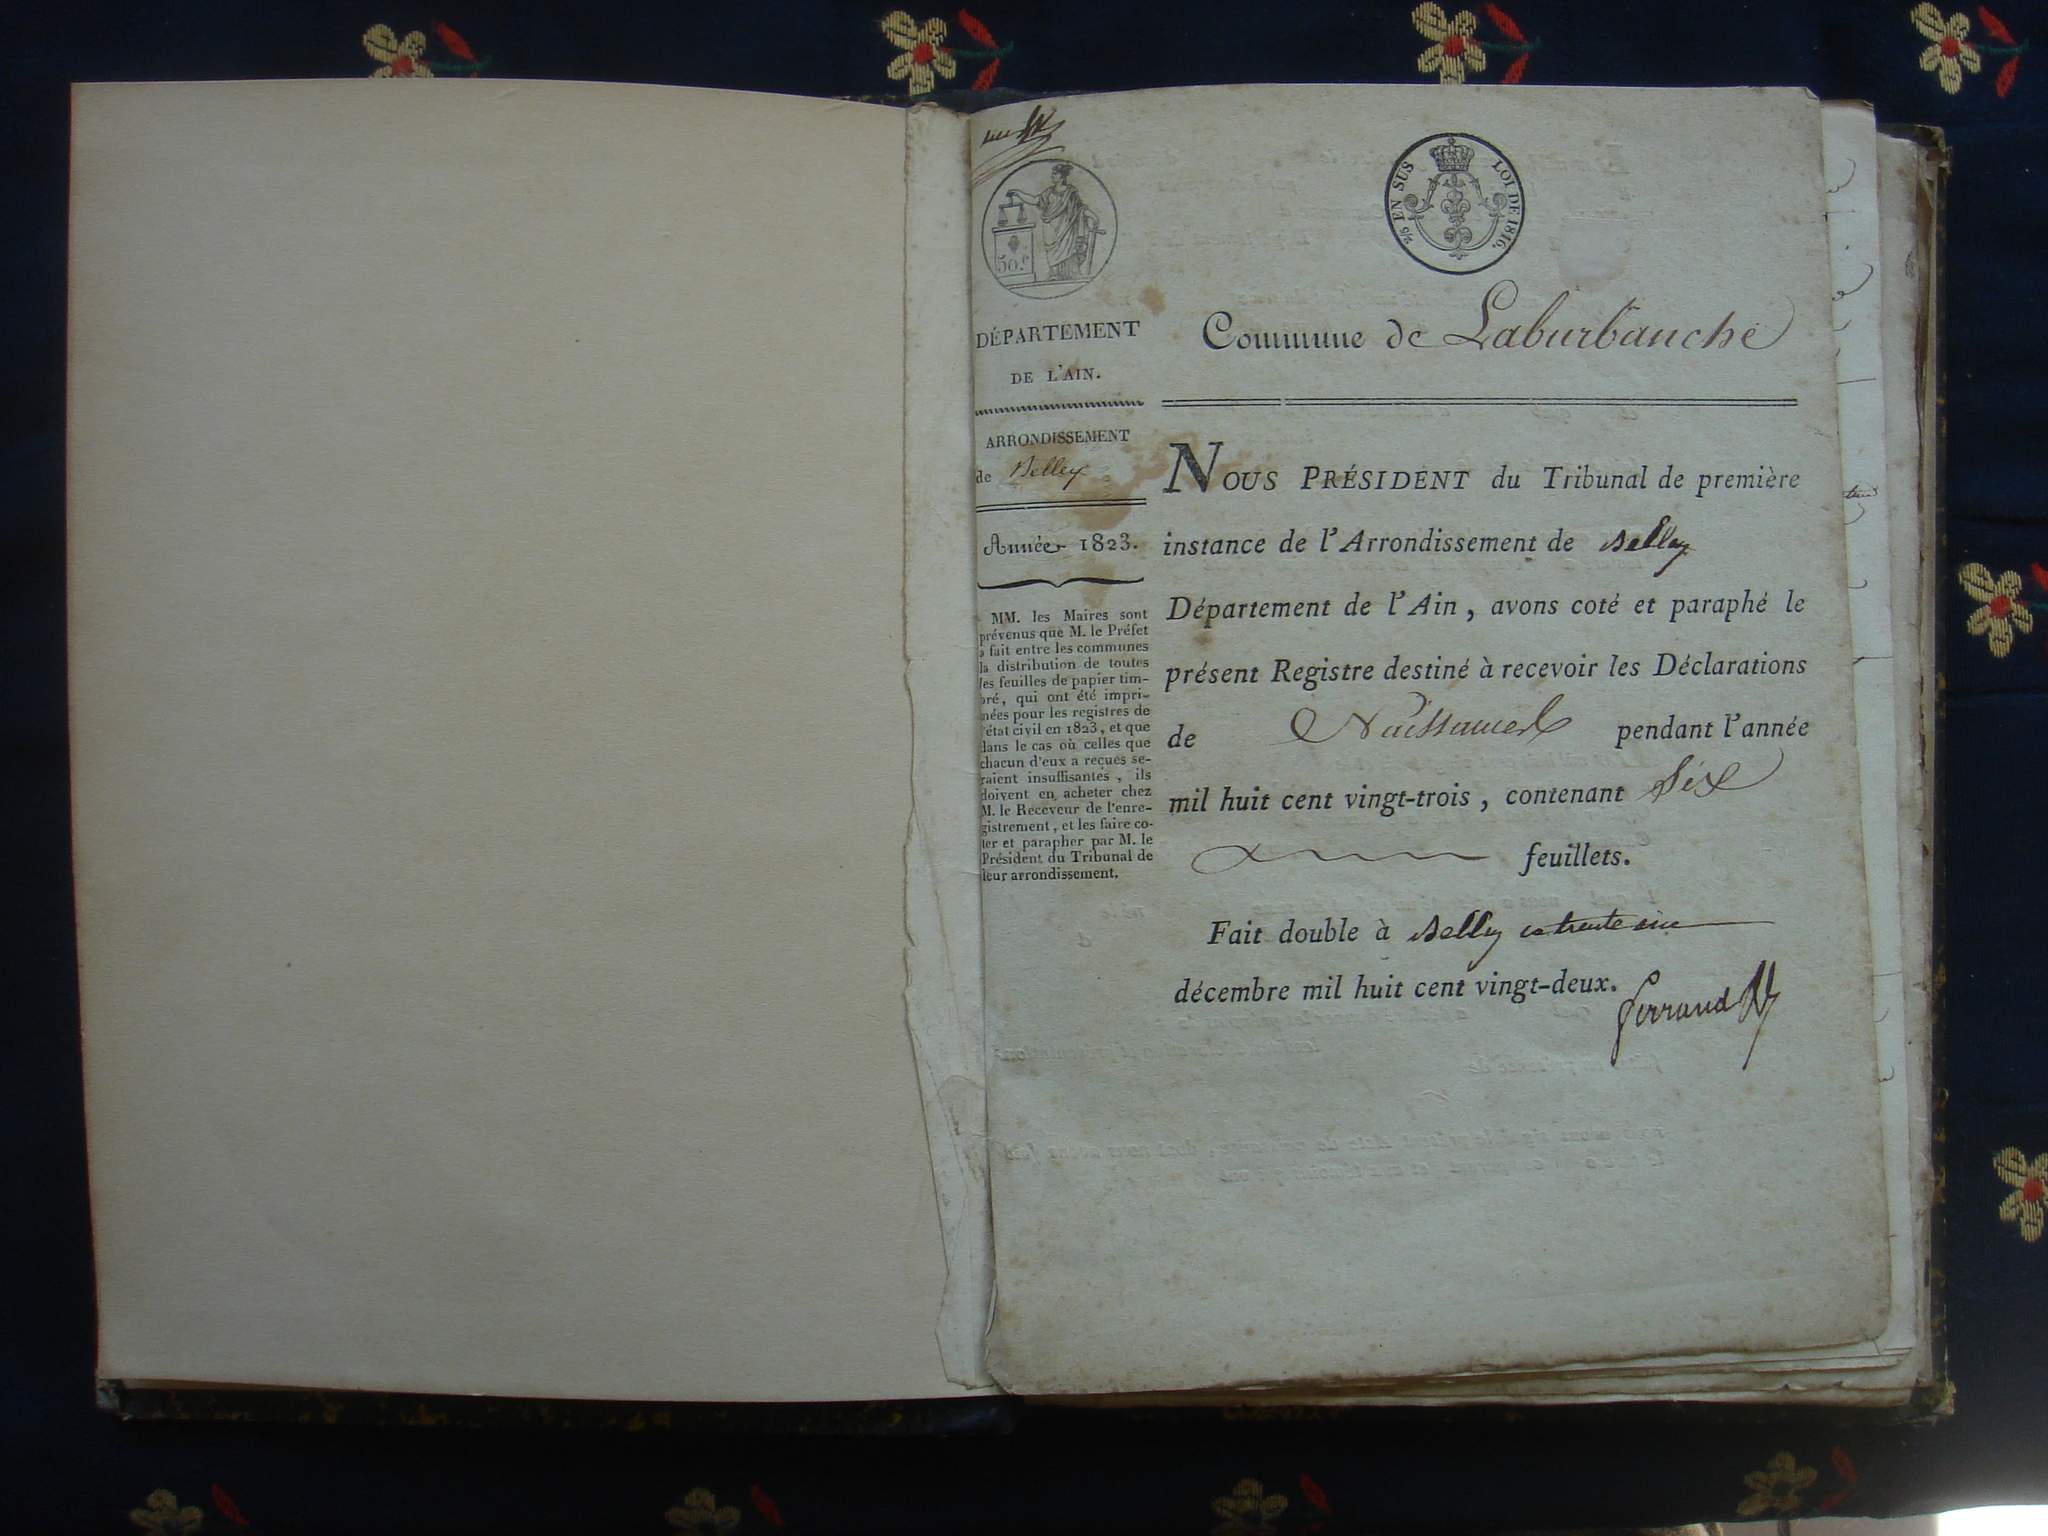 50.c
2/5 EN SUS LOI DE 1816.
DÉPARTEMENT
DE L'AIN.
ARRONDISSEMENT
de Belley
Année 1823.
MM. les Maires sont
prévenus que M. le Préfet
a fait entre les communes
la distribution de toutes
les feuilles de papier tim-
bré, qui ont été impri-
mées pour les registres de
l'état civil en 1823, et que
dans le cas où celles que
chacun d'eux a reçues se-
raient insuffisantes, ils
doivent en acheter chez
M. le Receveur de l'enre-
gistrement, et les faire co-
ter et parapher par M. le
Président du Tribunal de
leur arrondissement.
Commune de Laburbanche
NOUS PRÉSIDENT du Tribunal de première
instance de l'Arrondissement de Belley
Département de l'Ain, avons coté et paraphé le
présent Registre destiné à recevoir les Déclarations
de Naissances pendant l'année
mil huit cent vingt-trois, contenant Six
feuillets.
Fait double à Belley le trente un
décembre mil huit cent vingt-deux.
Ferrand